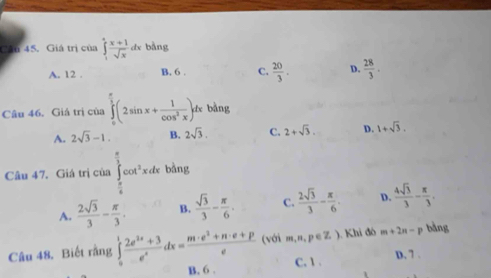 Câu 45. Giá trị của ∫ (x+1)/√x dx bằng
A. 12 . B. 6 . C. 20/3 . D. 28/3 .
Câu 46. Giá trị của ∫ (2sin x + 1/cos² x) dx bằng
A. 2√3 − 1 . B. 2√3 . C. 2+√3 . D. 1+√3 .
Câu 47. Giá trị của ∫ cot² x dx bằng
A. 2√3/3 − π/3 . B. √3/3 − π/6 . C. 2√3/3 − π/6 . D. 4√3/3 − π/3 .
Câu 48. Biết rằng ∫ (2e²ˣ + 3)/eˣ dx = (m·e² + n·e + p)/e (với m, n, p ∈ Z ). Khi đó m + 2n − p bằng
B. 6 . C. 1 . D. 7 .